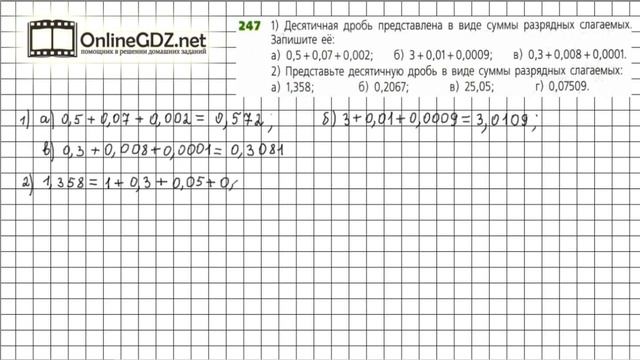 OnlineGDZ.net
помощник в решении домашних заданий
247 1) Десятичная дробь представлена в виде суммы разрядных слагаемых.
Запишите её:
а) 0,5 + 0,07 + 0,002; б) 3 + 0,01 + 0,0009; в) 0,3 + 0,008 + 0,0001.
2) Представьте десятичную дробь в виде суммы разрядных слагаемых:
а) 1,358; б) 0,2067; в) 25,05; г) 0,07509.
1) а) 0,5 + 0,07 + 0,002 = 0,572; б) 3 + 0,01 + 0,0009 = 3,0109;
в) 0,3 + 0,008 + 0,0001 = 0,3081
2) 1,358 = 1 + 0,3 + 0,05 + 0,